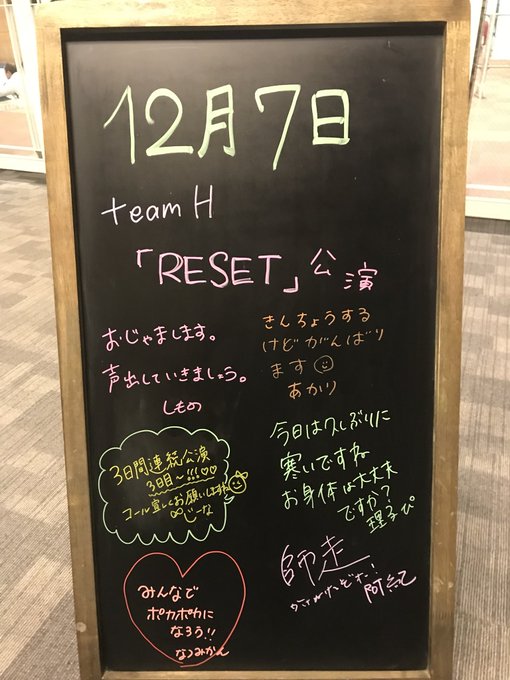 12月7日
team H
「RESET」公演
おじゃまします。
声出していきましょう。
しもの
きんちょうする
けどがんばり
ます
あかり
3日間連続公演
3日目〜!!!♡♡
コール宜しくお願いしますね
じーな
今日は久しぶりに
寒いですね
お身体は大丈夫
ですか?
理子ぴ
みんなで
ポカポカに
なろう!!
なつみかん
師走
阿紀